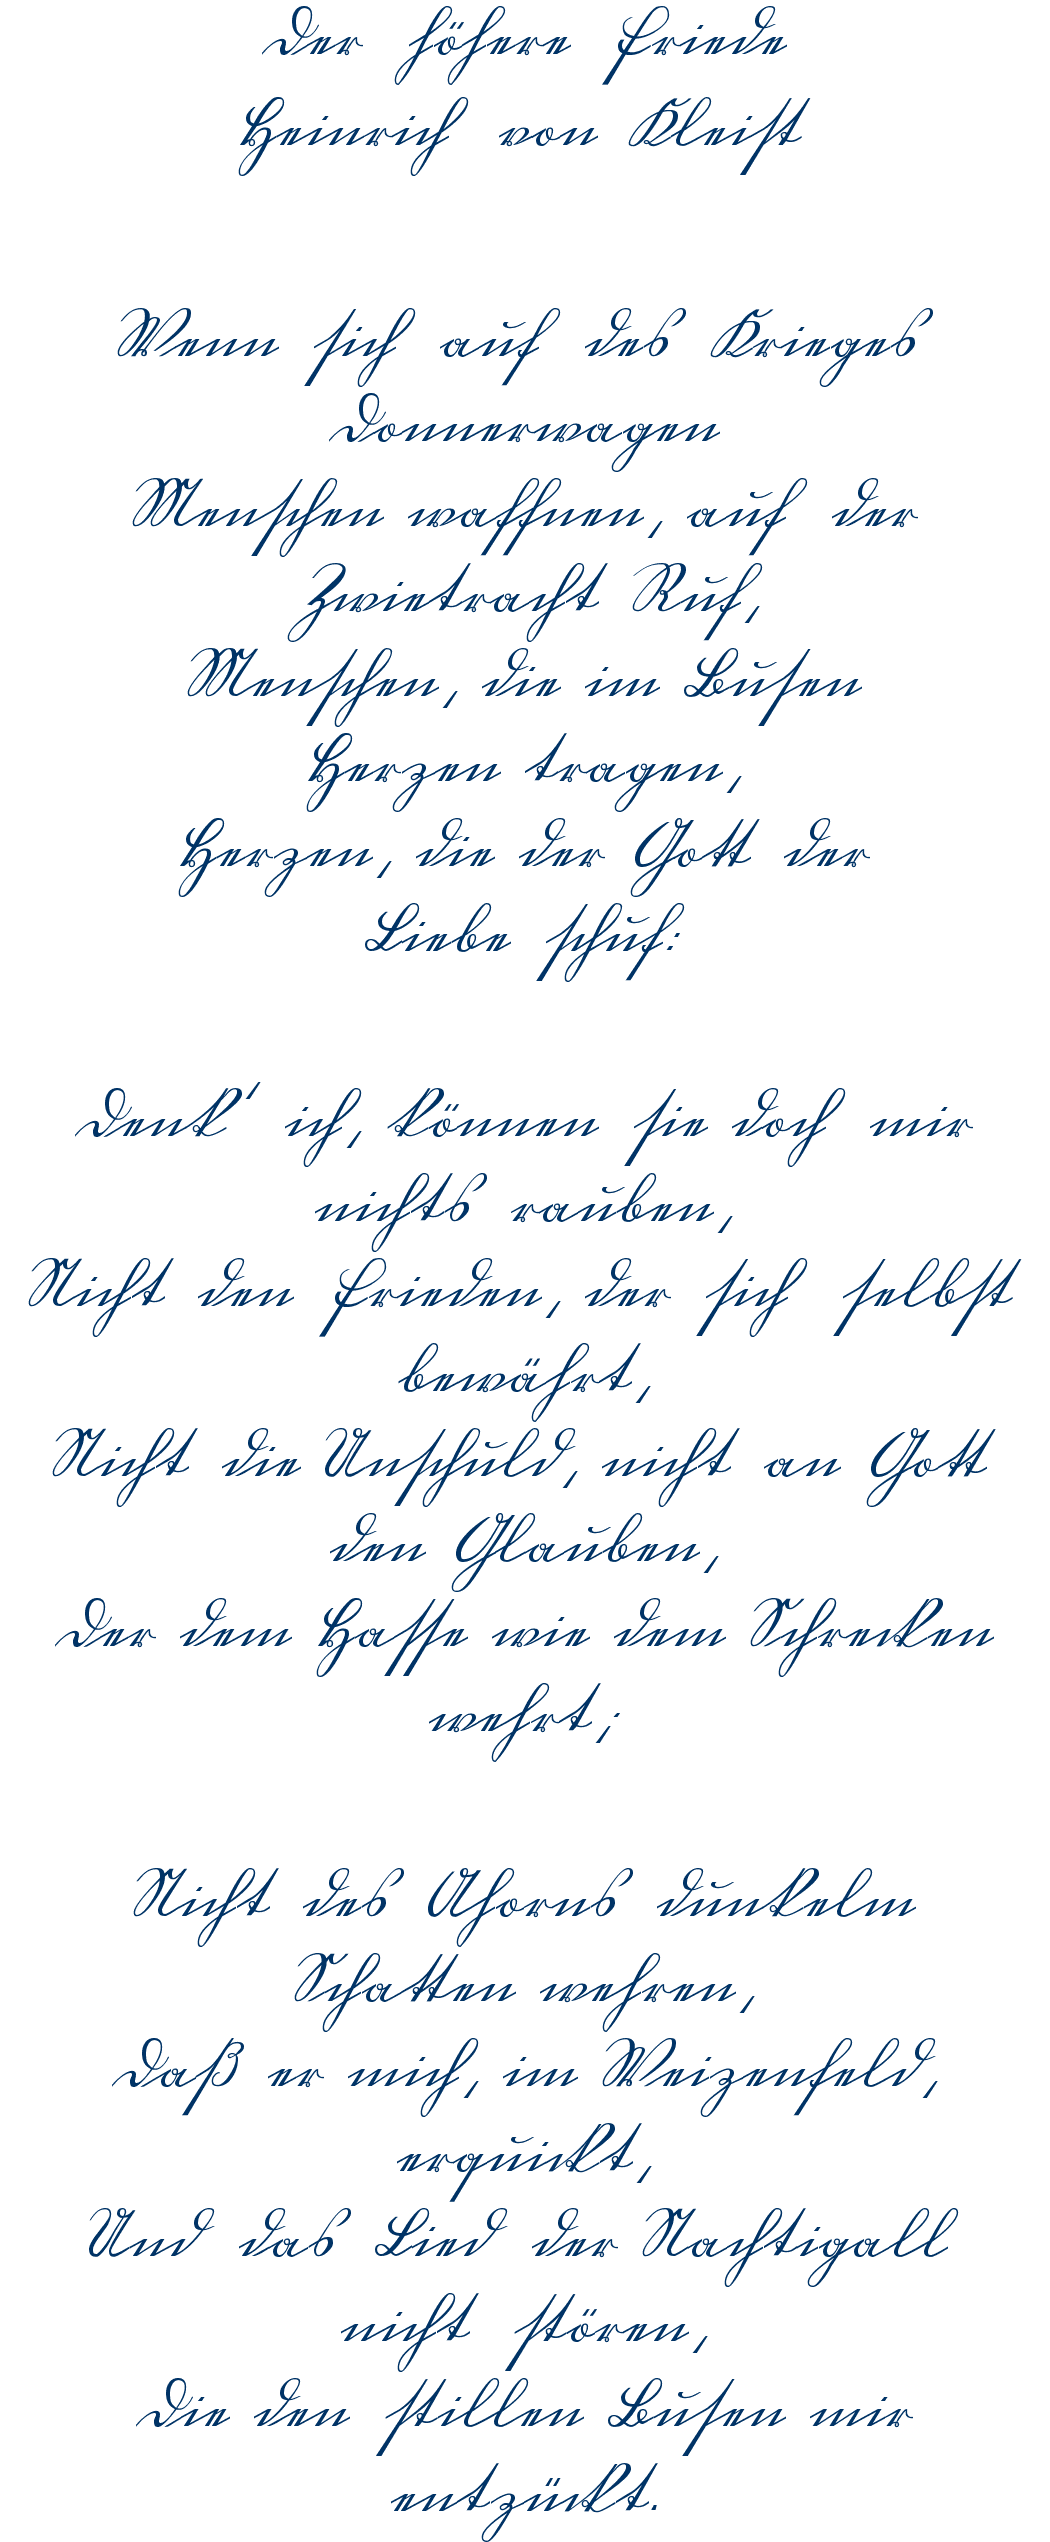 Der höhere Friede
Heinrich von Kleist
Wenn sich auf des Krieges
Donnerwagen
Menschen waffnen, auf der
Zwietracht Ruf,
Menschen, die im Busen
Herzen tragen,
Herzen, die der Gott der
Liebe schuf:
Denk' ich, können sie doch mir
nichts rauben,
Nicht den Frieden, der sich selbst
bewährt,
Nicht die Unschuld, nicht an Gott
den Glauben,
Der dem Hasse wie dem Schrecken
wehrt;
Nicht des Ahorns dunkelm
Schatten wehren,
Daß er mich, im Weizenfeld,
erquickt,
Und das Lied der Nachtigall
nicht stören,
Die den stillen Busen mir
entzückt.